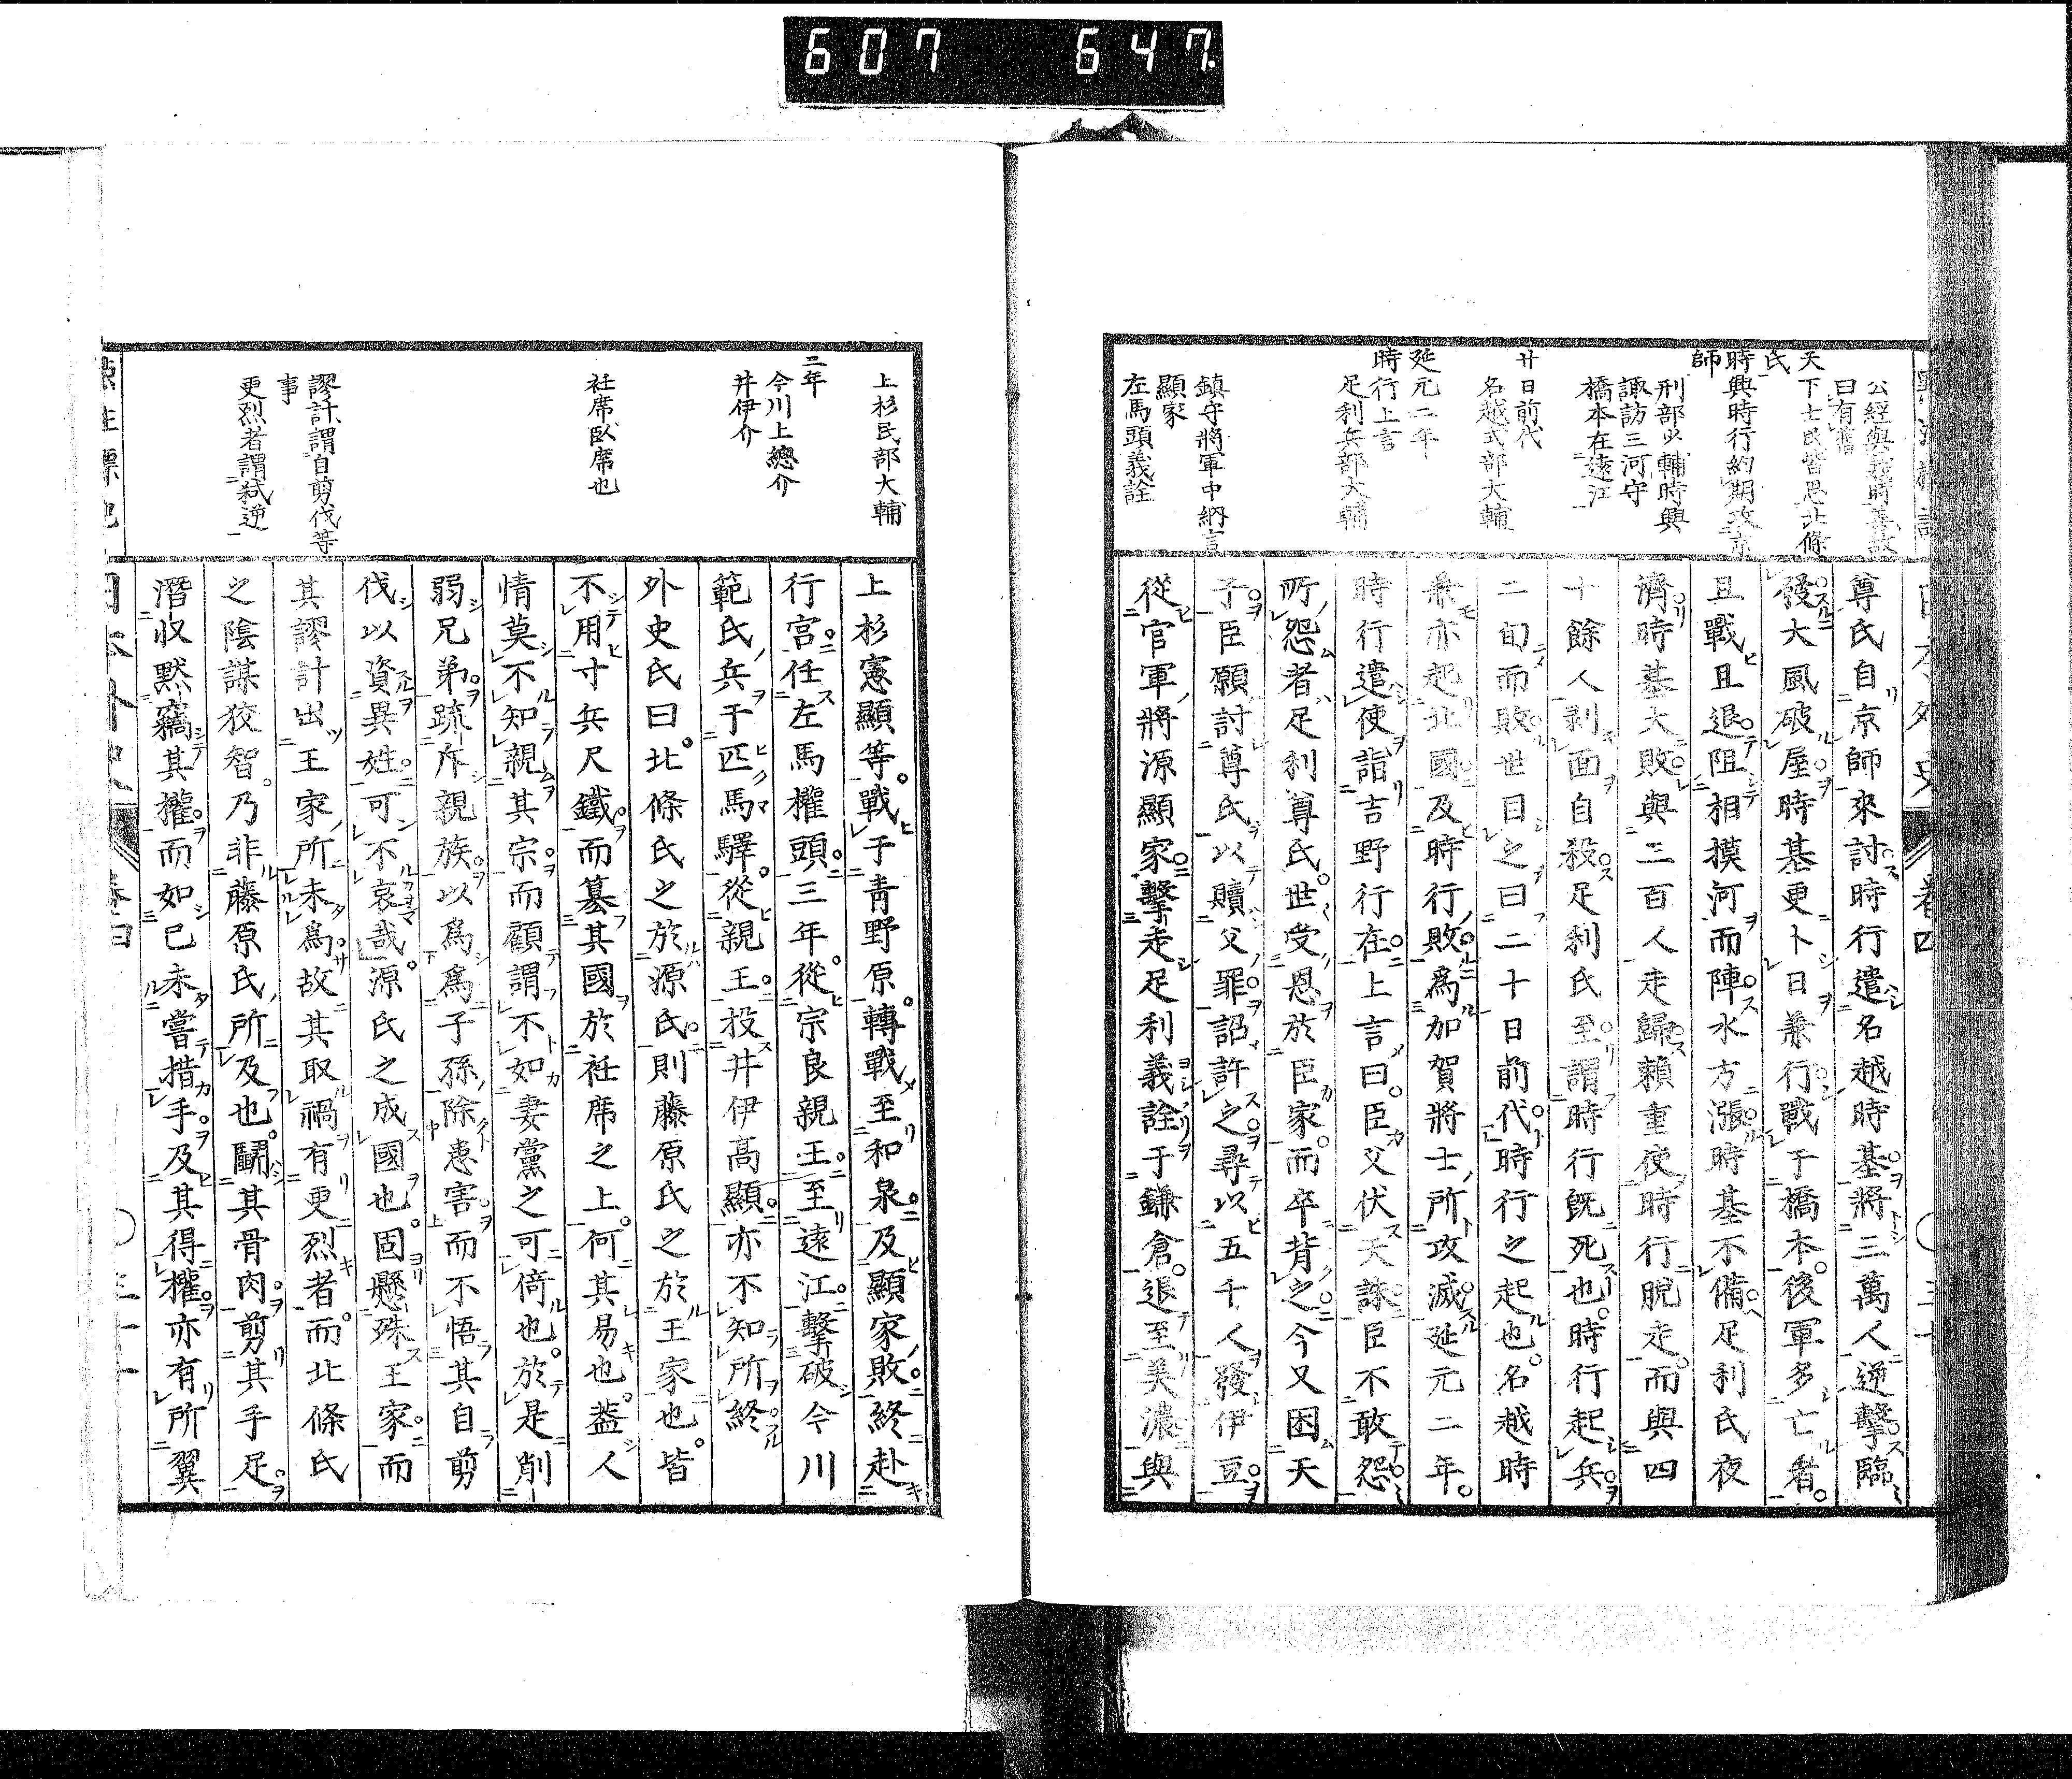 607 647
公經與義時善故
曰有舊
天下士民皆思北條
氏
時興時行約期攻京
師
刑部少輔時興
諏訪三河守
橋本在遠江
廿日前代
名越式部大輔
延元二年
時行上言
足利兵部大輔
鎮守將軍中納言
顯家
左馬頭義詮
尊氏自京師來討時行遣名越時基將三萬人逆擊臨
發大風破屋時基更卜日兼行戰于橋本後軍多亡者
且戰且退阻相摸河而陣水方漲時基不備足利氏夜
濟時基大敗與三百人走歸賴重使時行脫走而與四
十餘人剥面自殺足利氏至謂時行既死也時行起兵
二旬而敗世目之曰二十日前代時行之起也名越時
兼亦起北國及時行敗爲加賀將士所攻滅延元二年
時行遣使詣吉野行在上言曰臣父伏天誅臣不敢怨
所怨者足利尊氏世受恩於臣家而卒背之今又困天
子臣願討尊氏以贖父罪詔許之尋以五千人發伊豆
從官軍將源顯家擊走足利義詮于鎌倉退至美濃與
上杉民部大輔
二年
今川上總介
井伊介
衽席臥席也
謬計謂自剪伐等
事
更烈者謂弑逆
上杉憲顯等戰于青野原轉戰至和泉及顯家敗終赴
行宮任左馬權頭三年從宗良親王至遠江擊破今川
範氏兵于匹馬驛從親王投井伊高顯亦不知所終
外史氏曰北條氏之於源氏則藤原氏之於王家也皆
不用寸兵尺鐵而簒其國於衽席之上何其易也蓋人
情莫不知親其宗而顧謂不如妻黨之可倚也於是削
弱兄弟疏斥親族以爲爲子孫除患害而不悟其自剪
伐以資異姓可不哀哉源氏之成國也固懸殊王家而
其謬計出王家所未爲故其取禍有更烈者而北條氏
之陰謀狡智乃非藤原氏所及也鬭其骨肉剪其手足
潛收默竊其權而如已未嘗措手及其得權亦有所翼